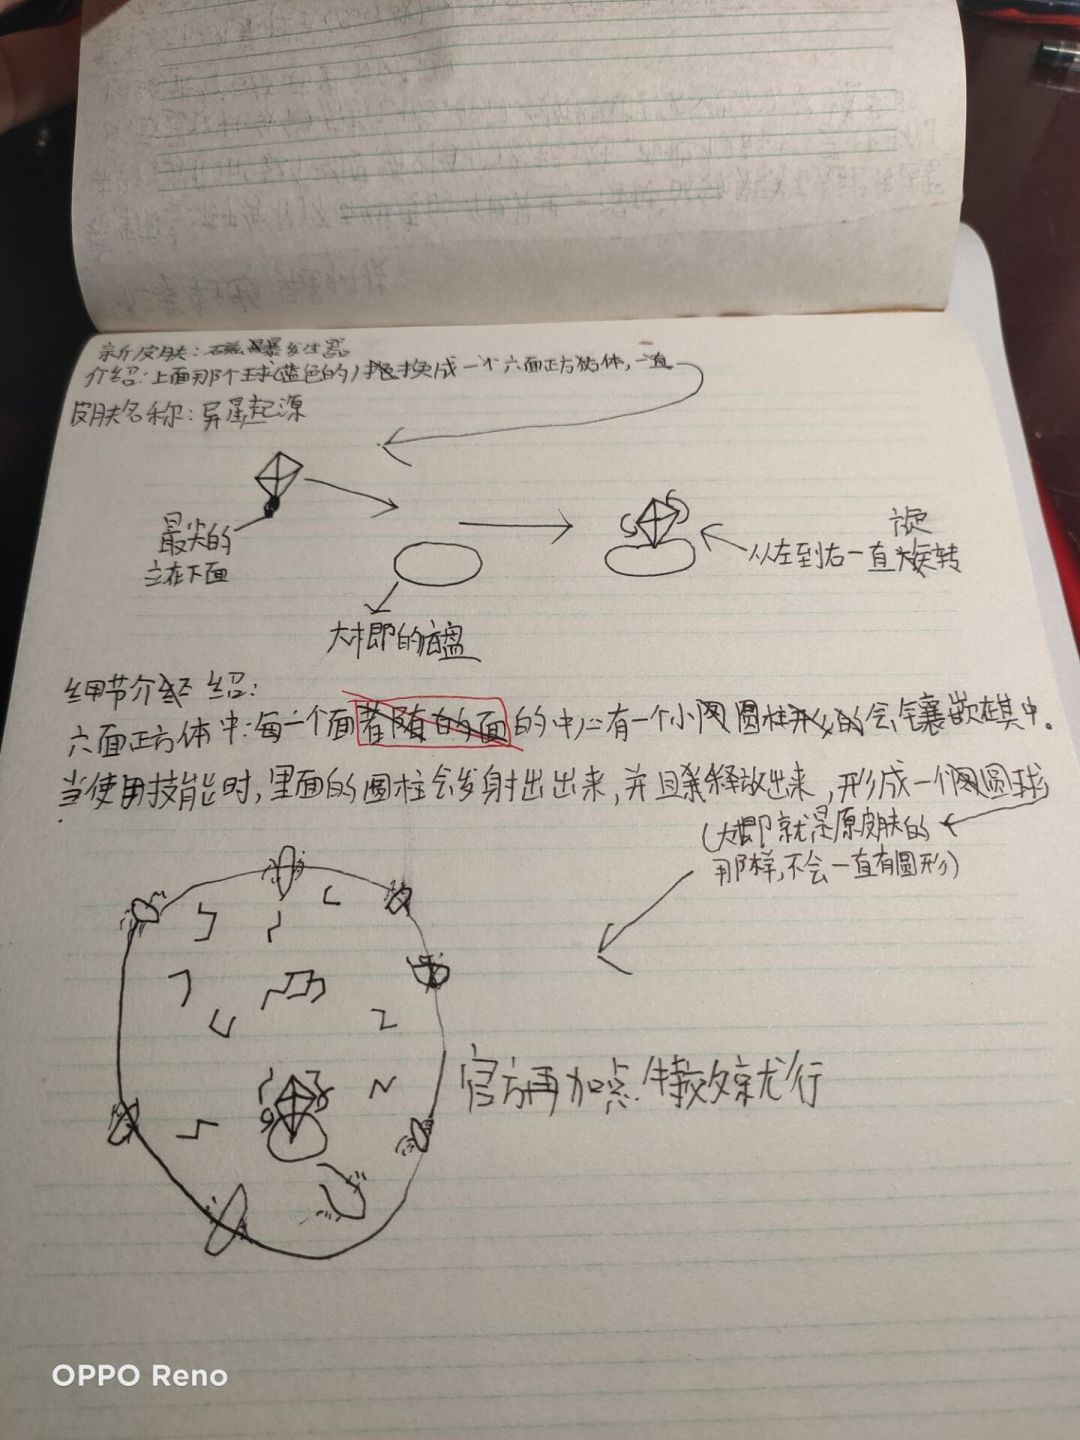 新皮肤:磁暴发生器
介绍:上面那个球(蓝色的)换成一个六面正方体,一直
皮肤名称:异星起源
最尖的
立在下面
大概的底盘
旋
从左到右一直旋转
细节介绍:
六面正方体中:每一个面的中心有一个小圆柱形的会镶嵌在其中.
当使用技能时,里面的圆柱会发射出出来,并且释放出来,形成一个圆球
(大概就是原皮肤的
那样,不会一直有圆形)
官方再加点特效就行
OPPO Reno